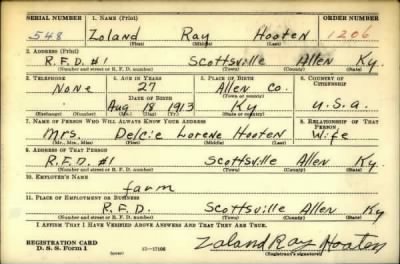 SERIAL NUMBER 1. NAME (Print) ORDER NUMBER
548 Zoland Ray Hooten 1206
(First) (Middle) (Last)
2. ADDRESS (Print)
R.F.D. #1 Scottsville Allen Ky.
(Number and street or R. F. D. number) (Town) (County) (State)
3. TELEPHONE 4. AGE IN YEARS 5. PLACE OF BIRTH 6. COUNTRY OF CITIZENSHIP
None 27 Allen Co.
DATE OF BIRTH (Town or county)
Aug 18 1913 Ky U.S.a.
(Exchange) (Number) (Mo.) (Day) (Yr.) (State or country)
7. NAME OF PERSON WHO WILL ALWAYS KNOW YOUR ADDRESS 8. RELATIONSHIP OF THAT PERSON
Mrs. Delcie Lorene Hooten Wife
(Mr., Mrs., Miss) (First) (Middle) (Last)
9. ADDRESS OF THAT PERSON
R.F.D. #1 Scottsville Allen Ky.
(Number and street or R. F. D. number) (Town) (County) (State)
10. EMPLOYER'S NAME
farm
11. PLACE OF EMPLOYMENT OR BUSINESS
R.F.D. Scottsville Allen Ky
(Number and street or R. F. D. number) (Town) (County) (State)
I AFFIRM THAT I HAVE VERIFIED ABOVE ANSWERS AND THAT THEY ARE TRUE.
REGISTRATION CARD
D. S. S. Form 1 (over) Zoland Ray Hooten
(Registrant's signature)